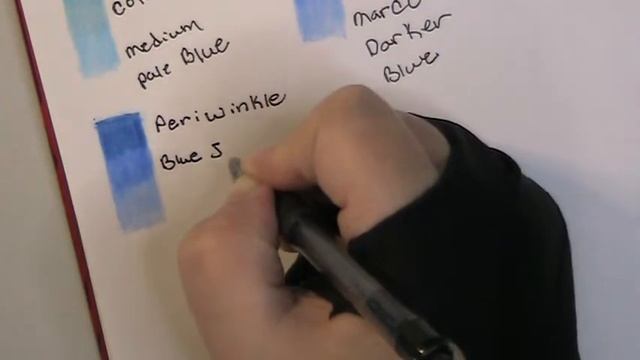 medium
pale Blue
Darker
Blue
Periwinkle
Blue J